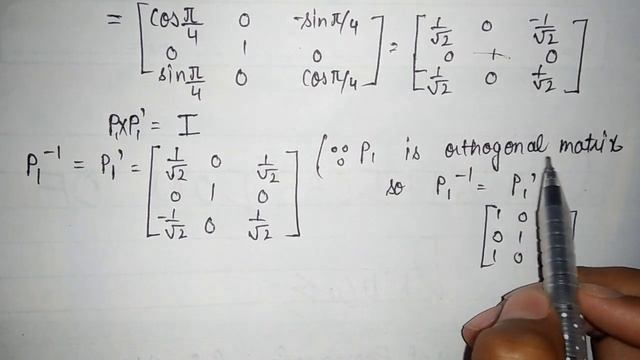 = [ cos π/4 0 -sin π/4
0 1 0
sin π/4 0 cos π/4 ] = [ 1/√2 0 -1/√2
0 1 0
1/√2 0 1/√2 ]
P₁×P₁' = I
P₁⁻¹ = P₁' = [ 1/√2 0 1/√2
0 1 0
-1/√2 0 1/√2 ]
(∵ P₁ is orthogonal matrix
so P₁⁻¹ = P₁'
[ 1 0
0 1
1 0 ]